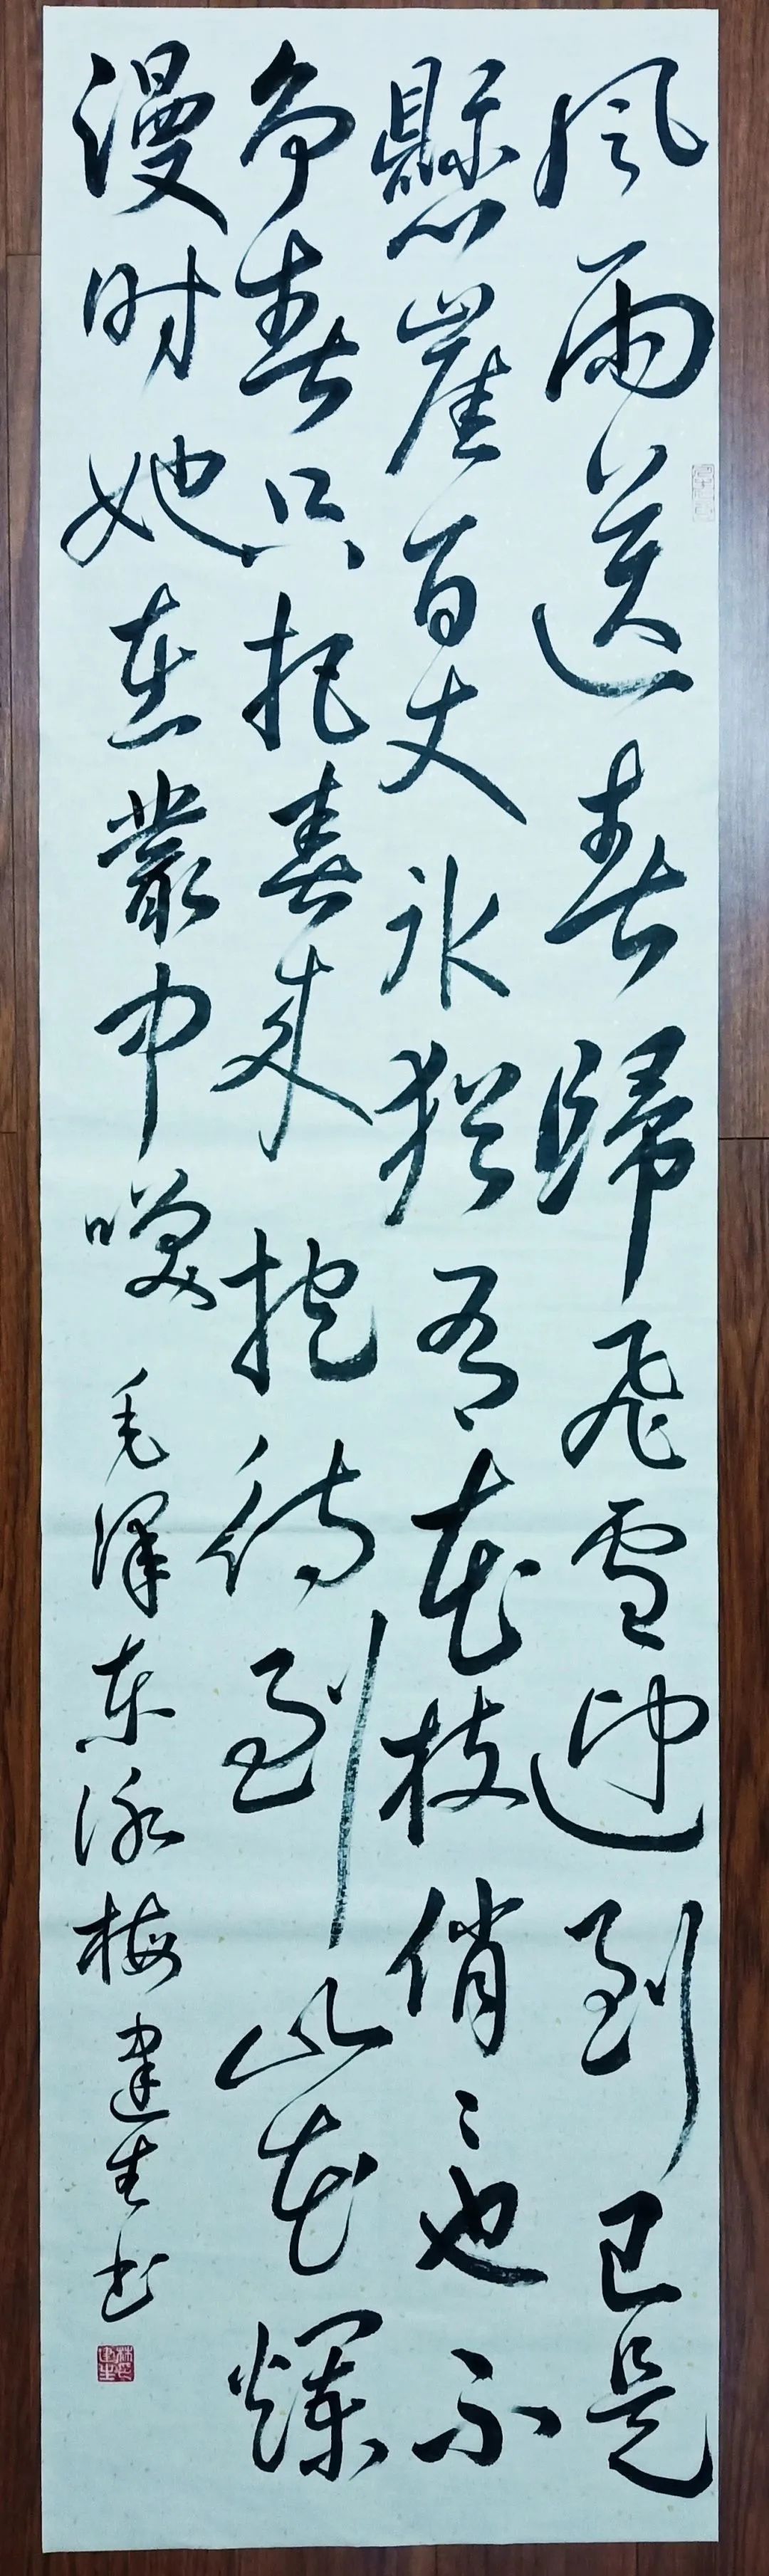 風雨送春歸飛雪迎到已是
懸崖百丈冰猶有花枝俏〻也不
争春只把春来抱待到此花爛
漫时她在叢中咲
毛澤东詠梅 建生书